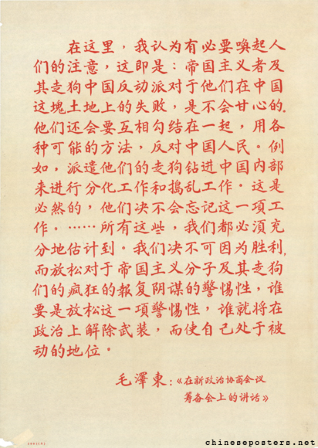 在这里，我认为有必要唤起人
们的注意，这即是：帝国主义者及
其走狗中国反动派对于他们在中国
这块土地上的失败，是不会甘心的。
他们还会要互相勾结在一起，用各
种可能的方法，反对中国人民。例
如，派遣他们的走狗钻进中国内部
来进行分化工作和捣乱工作。这是
必然的，他们决不会忘记这一项工
作。……所有这些，我们都必须充
分地估计到。我们决不可因为胜利，
而放松对于帝国主义分子及其走狗
们的疯狂的报复阴谋的警惕性，谁
要是放松这一项警惕性，谁就将在
政治上解除武装，而使自己处于被
动的地位。
毛澤东：《在新政治协商会议
筹备会上的讲话》
chineseposters.net